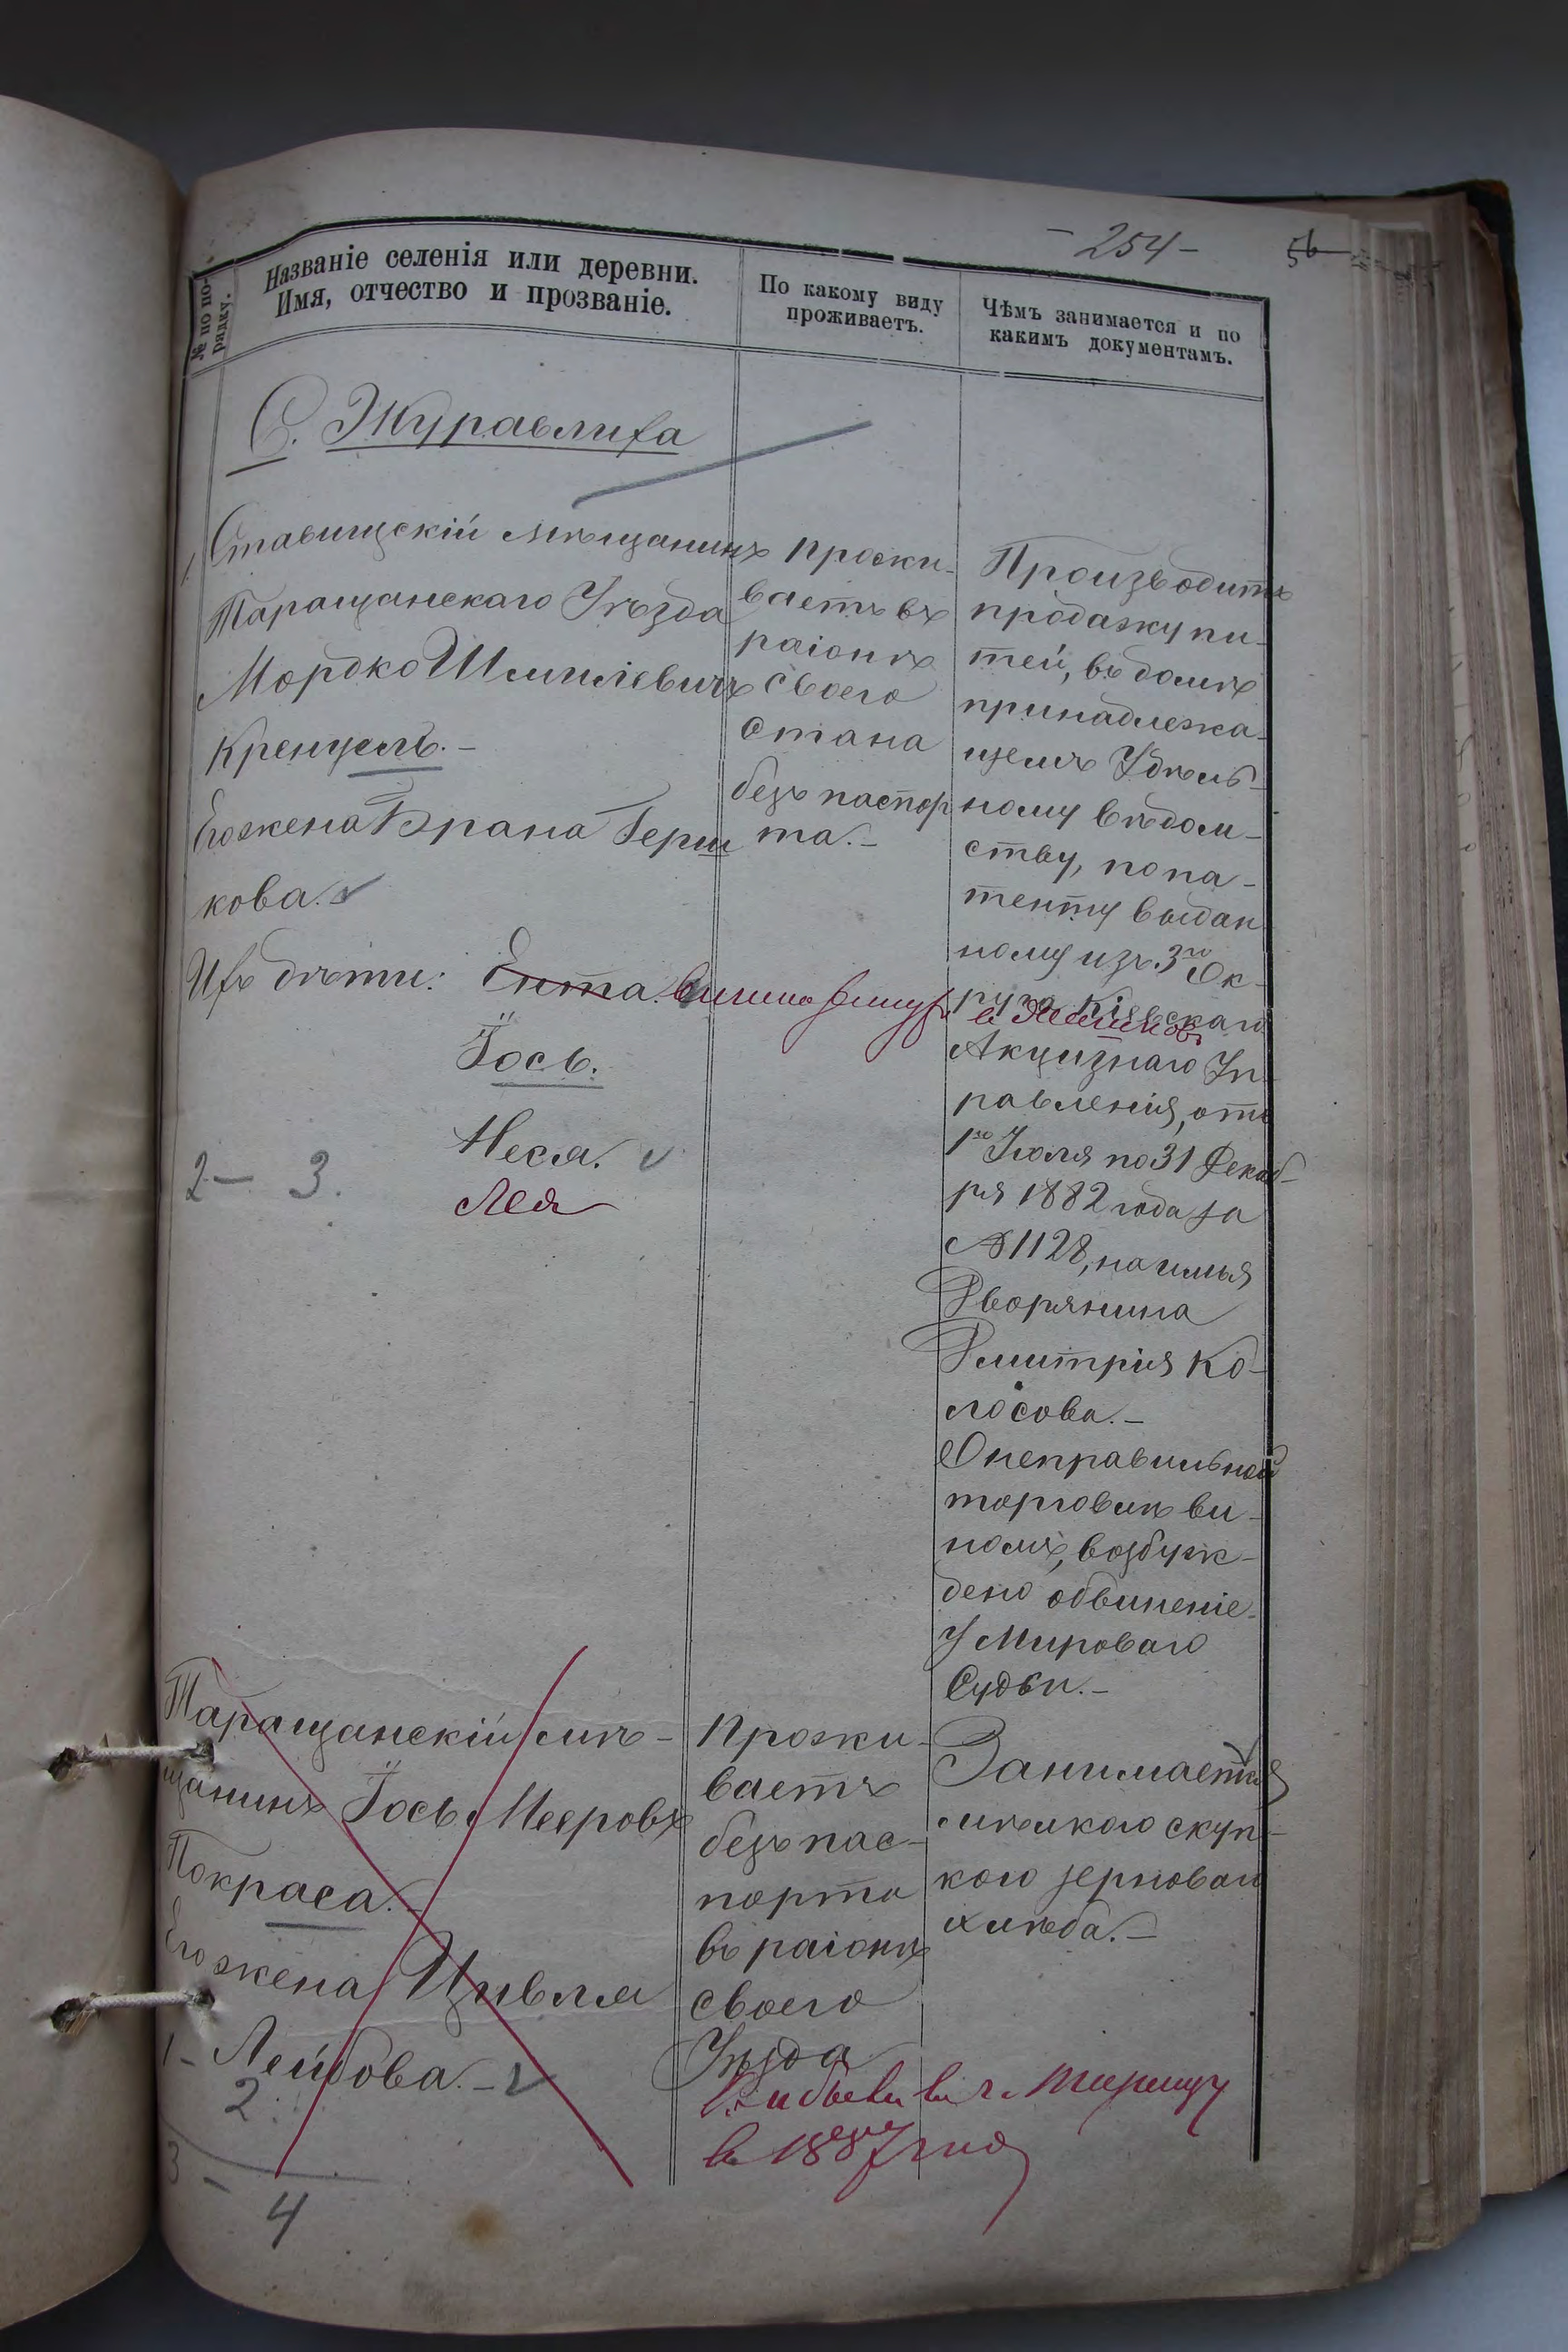 - 254 -
56
№ по по-
рядку.
Названіе селенія или деревни.
Имя, отчество и прозваніе.
По какому виду
проживаетъ.
Чѣмъ занимается и по
какимъ документамъ.
С. Журавлиха
1
Ставищскій мѣщанинъ
Таращанскаго Уѣзда
Мордко Шмилевичъ
Кренцель. -
Его жена Брана Герш
кова.
Ихъ дѣти: Ента. вышла замужъ
в Жашковъ
Іось.
Неся.
Лея
2 - 3.
Прожи-
ваетъ въ
раіонѣ
своего
Стана
безъ паспор
та. -
Производитъ
продажу пи-
тей, въ домѣ
принадлежа-
щемъ Удѣль-
ному вѣдом-
ству, по па-
тенту выдан
ному изъ 3го Ок-
руга Кіевскаго
Акцизнаго Уп-
равленія, отъ
1го Іюля по 31 Декаб-
ря 1882 года за
№ 1128, на имья
Дворянина
Дмитрія Ко-
лосова. -
О неправильной
торговлѣ ви-
номъ, возбуж-
дено обвиненіе
у Мироваго
Судьи. -
Таращанскій мѣ-
щанинъ Іось Мееровъ
Покраса. -
Его жена Цивля
1 - Лейбова. -
2
3 -
4
Прожи-
ваетъ
безъ пас-
порта
въ раіонѣ
своего
Уѣзда
Занимается
мѣлкою скуп-
кою зерноваго
хлѣба. -
в г. Таращу
в 1887 году